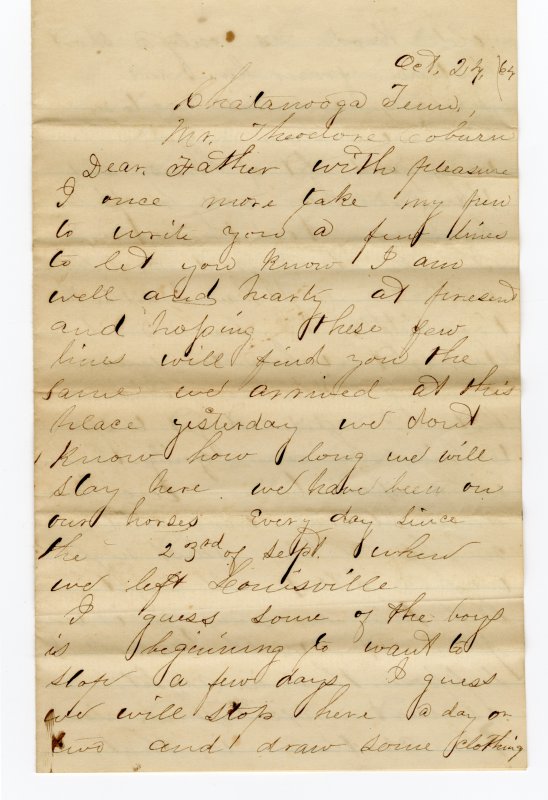 Oct, 24, /64
Chatanooga Tenn,
Mr. Theodore Coburn
Dear Father with pleasure
I once more take my pen
to write you a few lines
to let you know I am
well and hearty at present
and hoping these few
lines will find you the
same we arrived at this
place yesterday we dont
know how long we will
stay here we have been on
our horses Every day since
the 23rd of Sept. when
we left Louisville
I guess some of the boys
is beginning to want to
stop a few days I guess
we will stop here a day or
two and draw some clothing